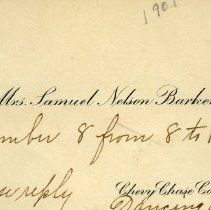 1901
Mrs. Samuel Nelson Barker
mber 8 from 8 to 1
reply
Chevy Chase Co
Dancing